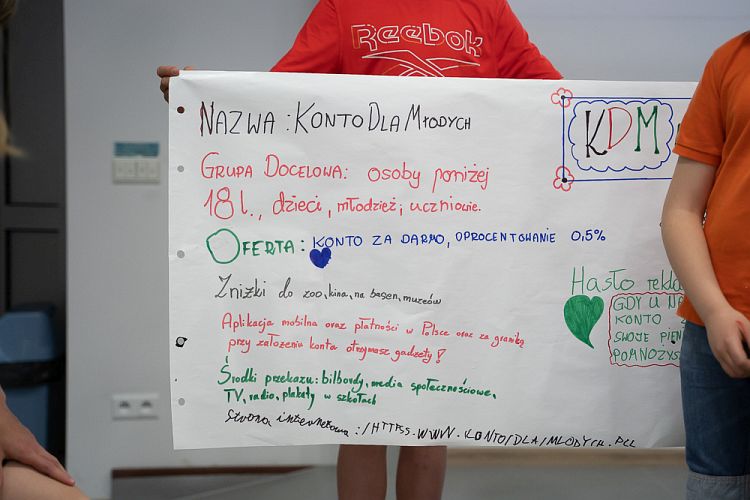 Reebok
NAZWA: KONTO DLA MŁODYCH
KDM
GRUPA DOCELOWA: osoby poniżej
18 l., dzieci, młodzież, uczniowie.
OFERTA: KONTO ZA DARMO, OPROCENTOWANIE 0,5%
Zniżki do zoo, kina, na basen, muzeów
Aplikacja mobilna oraz płatności w Polsce oraz za granicą
przy założeniu konta otrzymasz gadżety!
Środki przekazu: bilbordy, media społecznościowe,
TV, radio, plakaty w szkołach
Strona internetowa: /HTTPSS.WWW.KONTO/DLA/MŁODYCH.PLL
Hasło rekla
GDY U NA
KONTO
SWOJE PIEN
POMNOŻYS